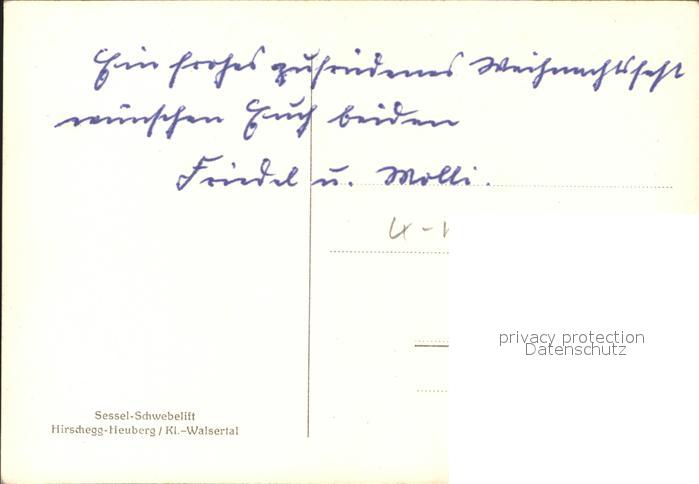 Ein frohes zufriedenes Weihnachtsfest
wünschen Euch beiden
Friedel u. Molli.
privacy protection
Datenschutz
Sessel-Schwebelift
Hirschegg-Heuberg / Kl.-Walsertal